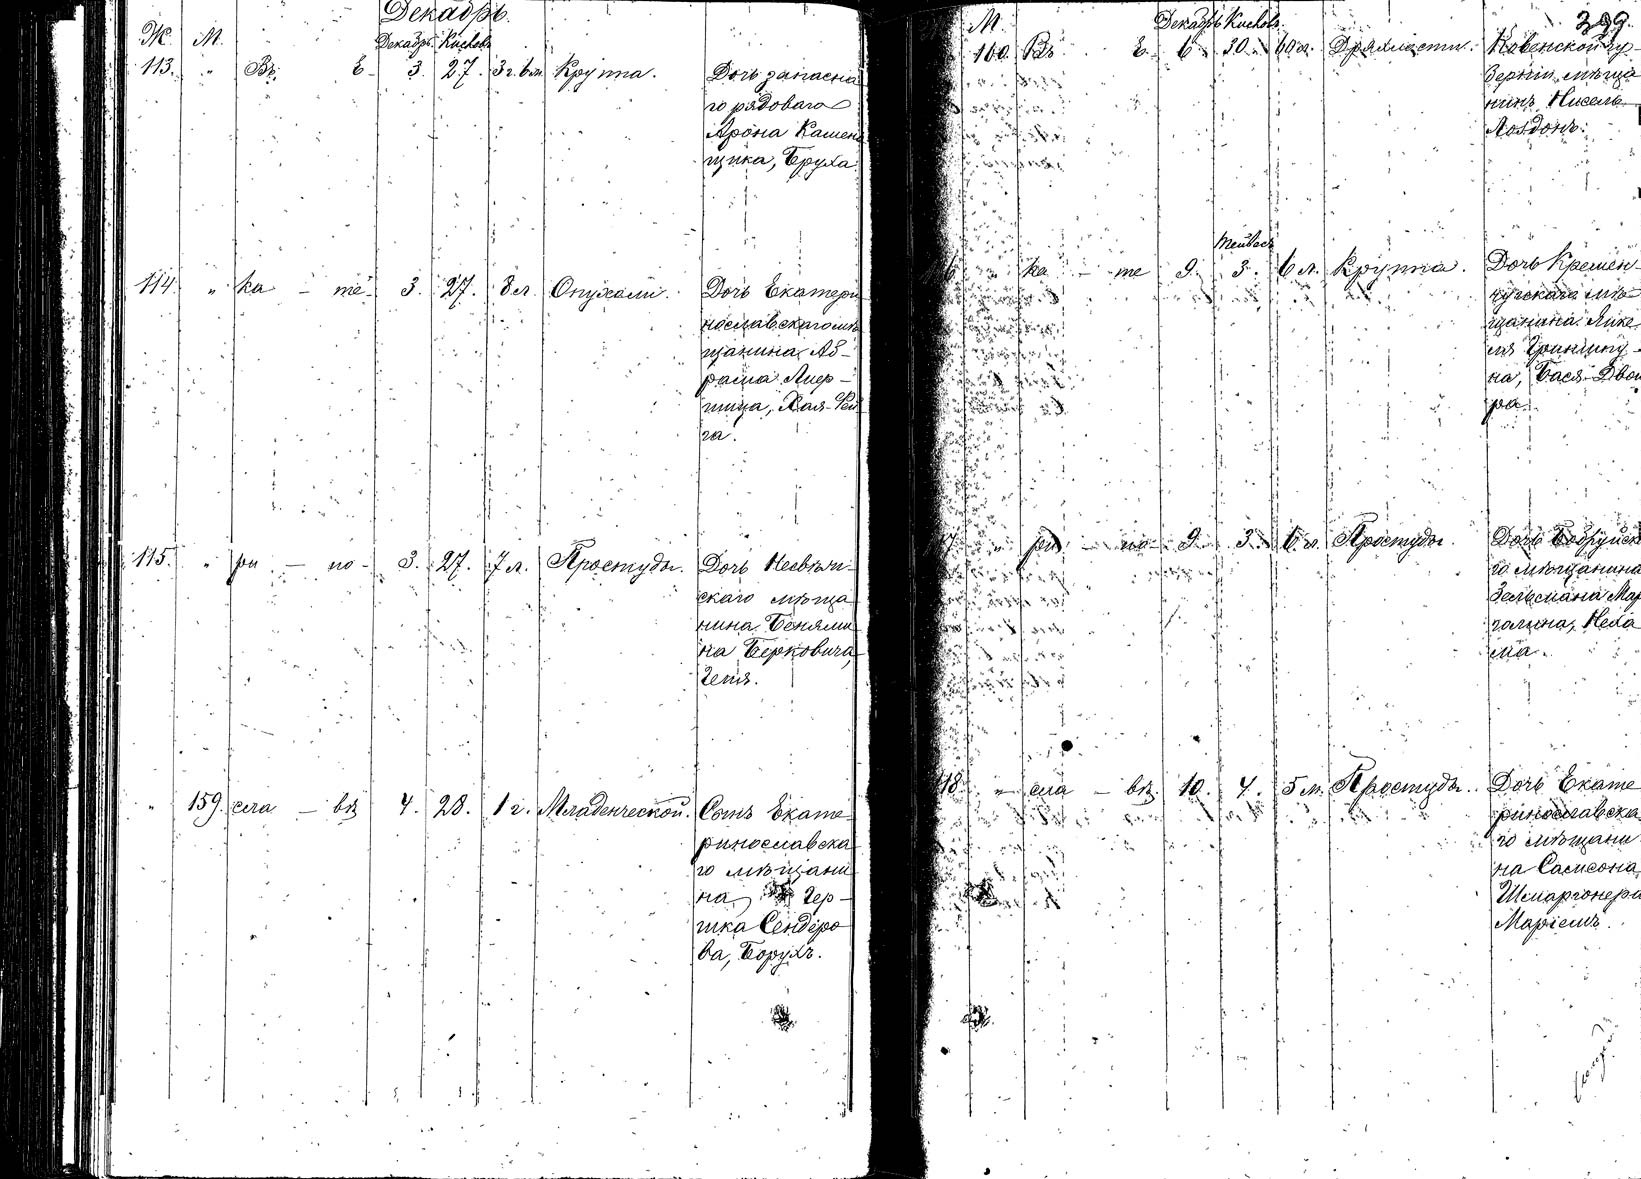 Декабрь.
Ж. М. Декабрь Кислевъ
113. " Въ Е- 3. 27. 3 г. 6 м. Круппа. Дочь запасна
го рядоваго
Арона Камен
щика, Бруха
114. " ка - те- 3. 27. 8 л. Опухоли. Дочь Екатери
нославскаго мѣ
щанина Аб-
рама
Хая-Фей
га.
115. " ри - но- 3. 27. 7 л. Простуды. Дочь Несвѣж
скаго мѣща
нина Беньями
на Берковича,
Геня.
" 159. сла - вѣ 4. 28. 1 г. Младенческой. Сынъ Екате
ринославска
го мѣщани
на Гер-
шка Сендеро
ва, Борухъ.
399.
М. Декабрь Кислевъ
160. Въ Е- 6. 30. 60 л. Дряхлости. Ковенской гу-
берніи мѣща
нинъ Нисель
Тейвесъ
6 " ка - те 9. 3. 6 л. Круппа. Дочь Кремен-
чугскаго мѣ-
щанина Янке
ля
на, Бася-Двой
ра.
17 " ри - но 9. 3. 6 л. Простуды. Дочь Бобруйска
го мѣщанина
Зельмана Мар
голина, Неха
ма.
118. " сла - вѣ 10. 4. 5 м. Простуды. Дочь Екате
ринославска
го мѣщани
на Самсона
Шмаргонера
Маріемъ.